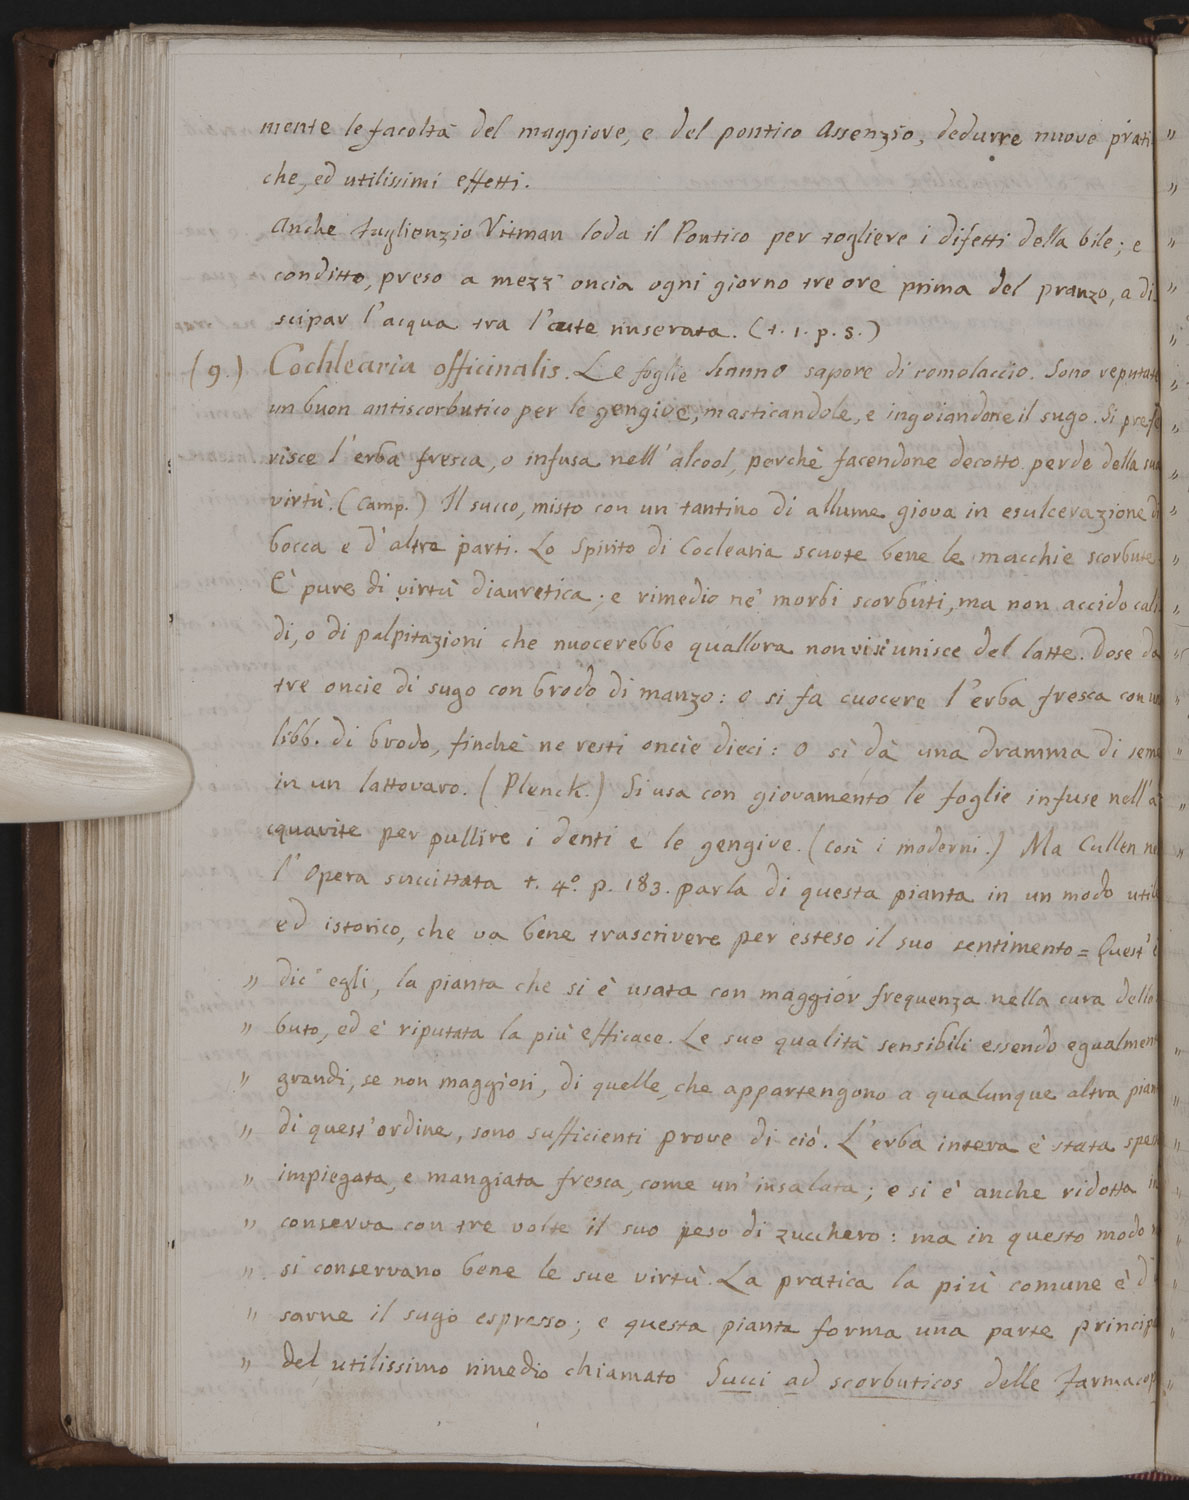 mente le facoltà del maggiore, e del pontico Assenzio, dedurre nuove prati
che, ed utilissimi effetti.
Anche Fuglionzio Vitman loda il Pontico per togliere i difetti della bile; e
conditto, preso a mezz'oncia ogni giorno tre ore prima del pranzo, a di
scipar l'acqua tra l'cute rinserata. (t. 1. p. s.)
(9.) Cochlearia officinalis. Le foglie hanno sapore di romolaccio. Sono reputate
un buon antiscorbutico per le gengive, masticandole, e ingoiandone il sugo. Si prefe
risce l'erba fresca, o infusa nell'alcool, perchè facendone decotto perde della sua
virtù. (Camp.) Il succo, misto con un tantino di allume giova in esulcerazione di
bocca e d'altre parti. Lo Spirito di Coclearia scuote bene le macchie scorbute
E' pure di virtù diauretica; e rimedio ne' morbi scorbuti, ma non accido cali
di, o di palpitazioni che nuocerebbe quallora non visi unisce del latte. Dose da
tre oncie di sugo con brodo di manzo: o si fa cuocere l'erba fresca con una
libb. di brodo, finchè ne resti oncie dieci: o si dà una dramma di seme
in un lattovaro. (Plenck.) Si usa con giovamento le foglie infuse nell'a
cquavite per pullire i denti e le gengive. (Così i moderni.) Ma Cullen nel
l'Opera succittata t. 4º. p. 183. parla di questa pianta in un modo utile
ed istorico, che va bene trascrivere per esteso il suo sentimento = Quest' è
" dic'egli, la pianta che si è usata con maggior frequenza nella cura dello
" buto, ed è riputata la più efficace. Le sue qualità sensibili essendo egualment
" grandi, se non maggiori, di quelle, che appartengono a qualunque altra pian
" di quest'ordine, sono sufficienti prove di ciò. L'erba intera è stata spes
" impiegata, e mangiata fresca, come un'insalata; e si è anche ridotta in
" conserva con tre volte il suo peso di zucchero: ma in questo modo n
" si conservano bene le sue virtù. La pratica la più comune è d
" sarne il sugo espresso; e questa pianta forma una parte princip
" del utilissimo rimedio chiamato Succi ad scorbuticos delle Farmacop